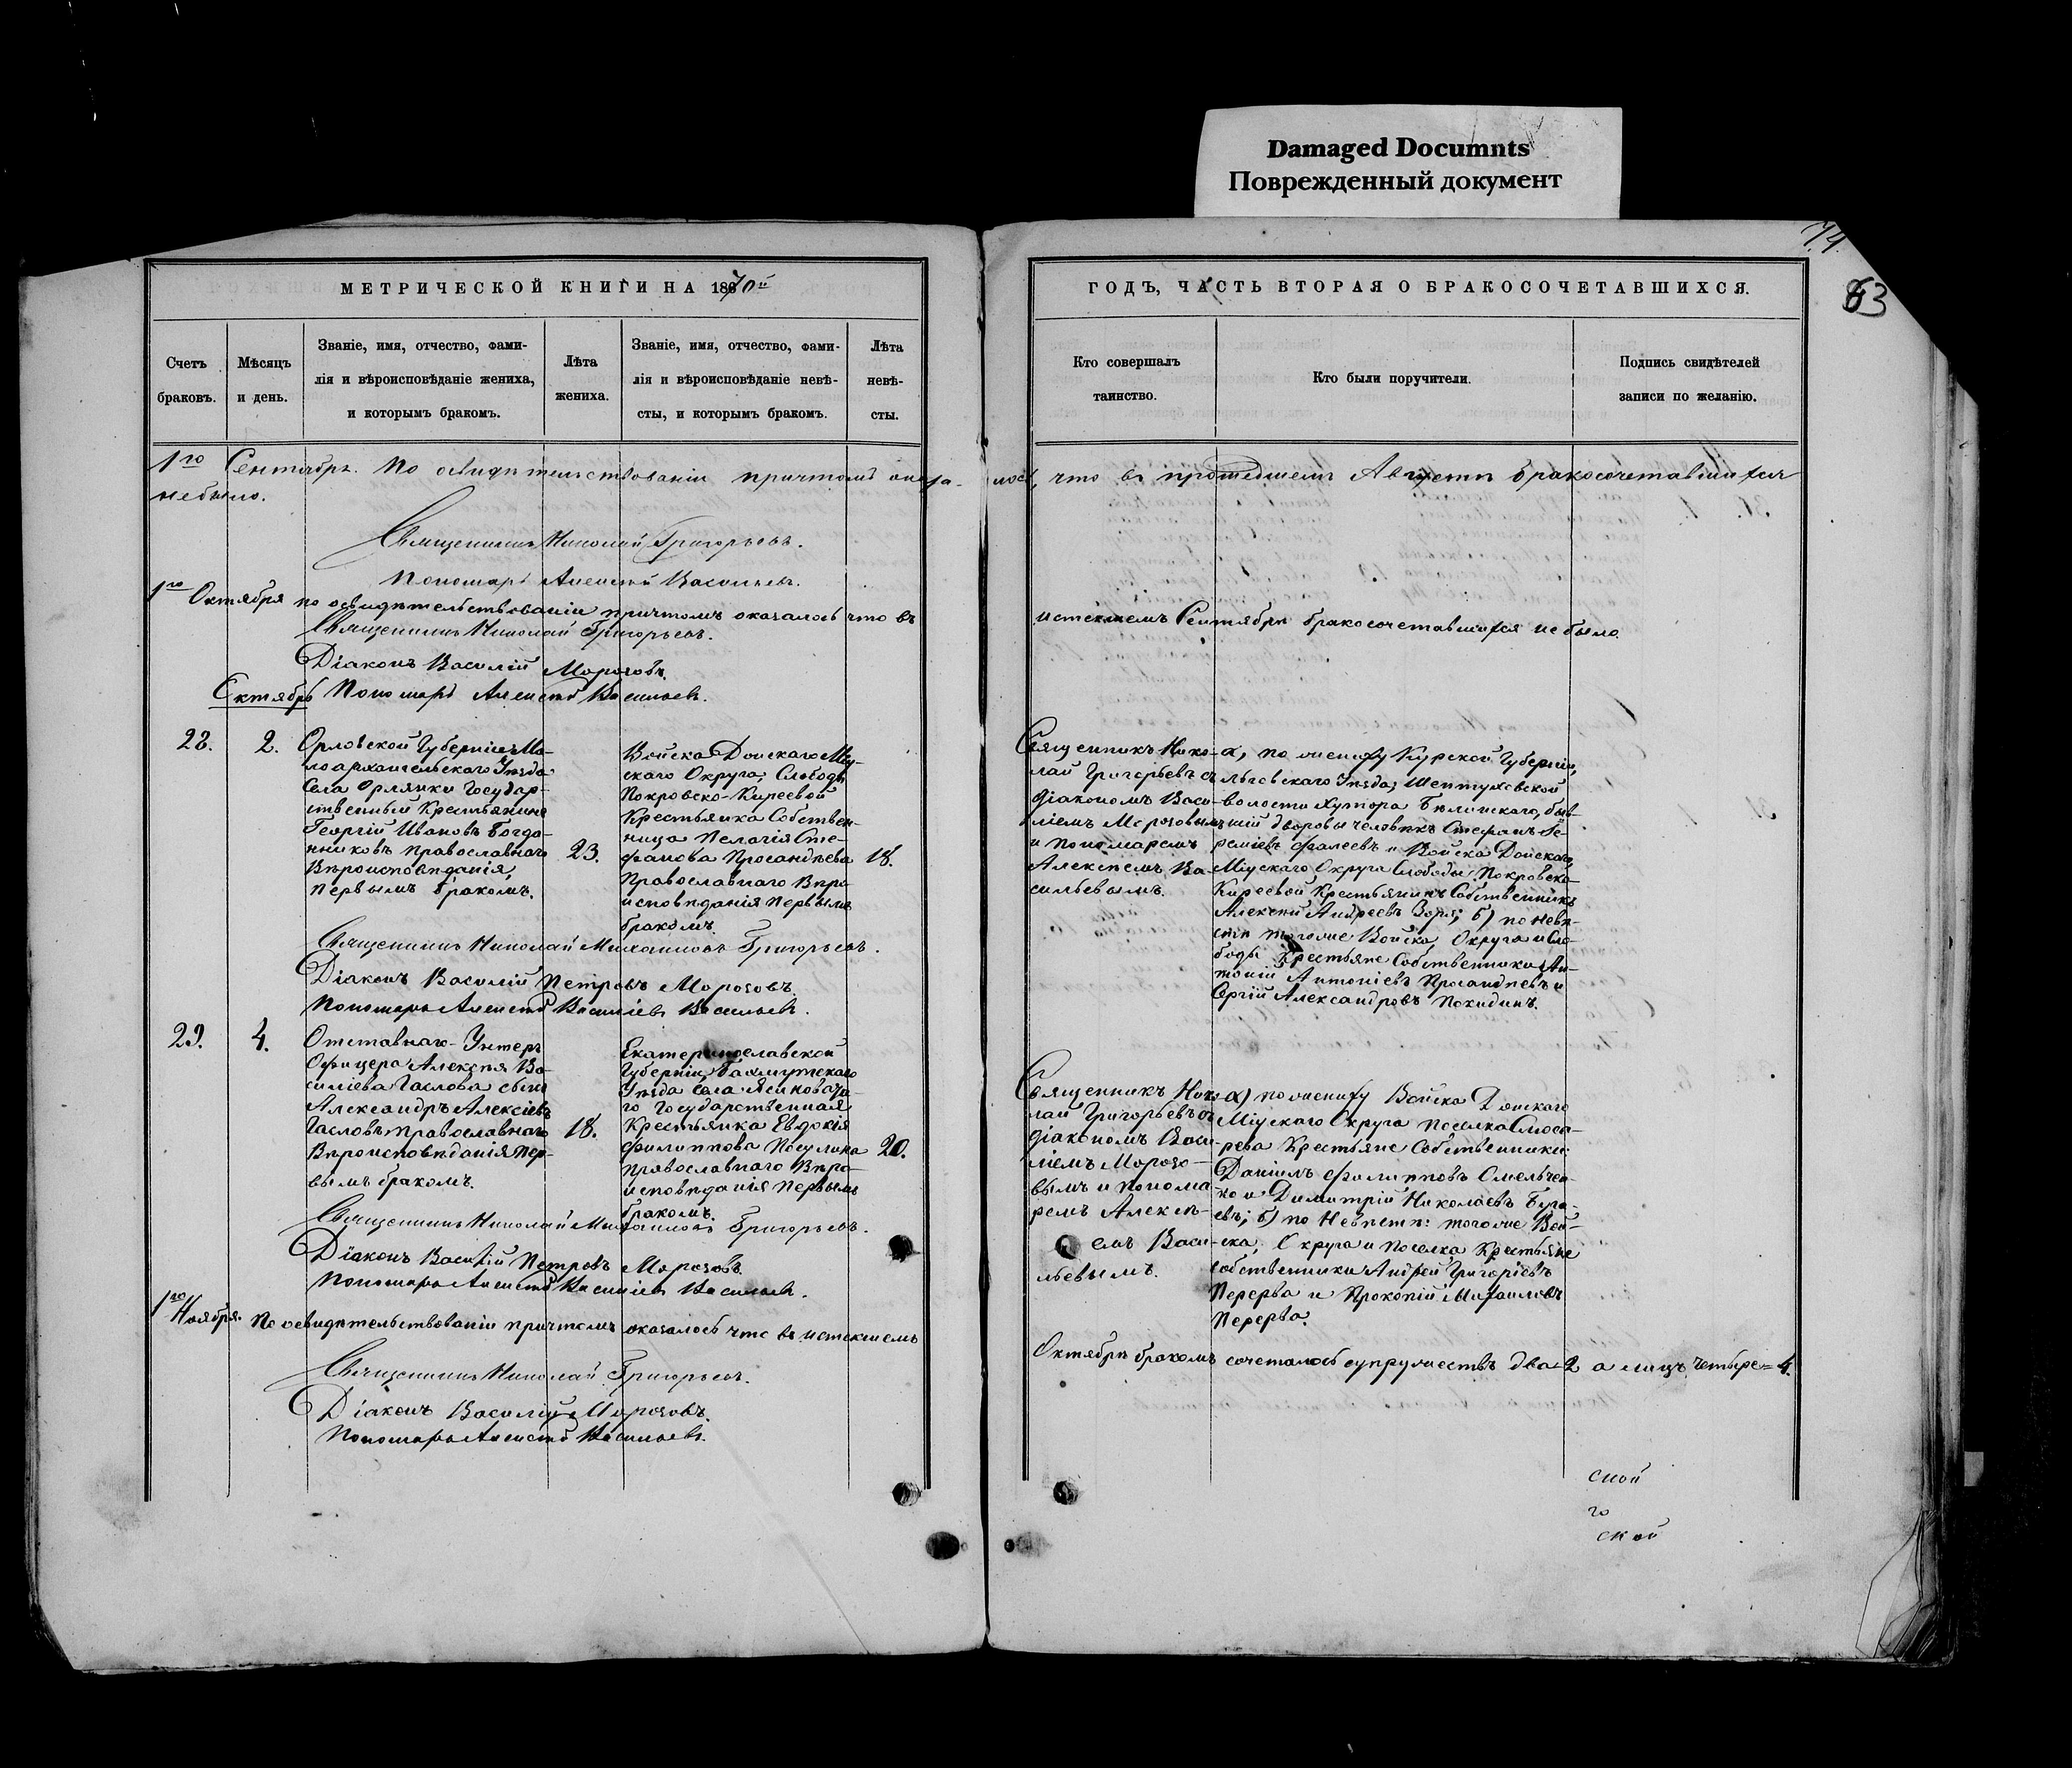 Damaged Documnts
Поврежденный документ
74.
63
МЕТРИЧЕСКОЙ КНИГИ НА 1870й
ГОДЪ, ЧАСТЬ ВТОРАЯ О БРАКОСОЧЕТАВШИХСЯ.
Счетъ
браковъ.
Мѣсяцъ
и день.
Званіе, имя, отчество, фами-
лія и вѣроисповѣданіе жениха,
и которымъ бракомъ.
Лѣта
жениха.
Званіе, имя, отчество, фами-
лія и вѣроисповѣданіе невѣ-
сты, и которымъ бракомъ.
Лѣта
невѣ-
сты.
Кто совершалъ
таинство.
Кто были поручители.
Подпись свидѣтелей
записи по желанію.
1го Сентября. По освидѣтельствованіи причтомъ оказа- лось, что въ прошедшемъ Августѣ бракосочетавшихся
небыло.
Священникъ Николай Григорьевъ.
Пономарь Алексѣй Васильевъ.
1го Октября по освидѣтельствованіи причтомъ оказалось что въ
истекшемъ Сентябрѣ бракосочетавшихся не было.
Священникъ Николай Григорьевъ.
Діаконъ Василій Морозовъ.
Пономарь Алексѣй Васильевъ.
Октябрь
22.
2.
Орловской Губерніи Ма-
лоархангельскаго Уѣзда
Села Орлянки Государ-
ственный Крестьянинъ
Георгій Ивановъ Богда-
нниковъ православнаго
Вѣроисповѣданія,
первымъ бракомъ.
23.
Войска Донскаго Міу-
скаго Округа, Слободы
Покровско-Киреевой
Крестьянка Собствен-
ница Пелагія Сте-
фанова Просандѣева
Православнаго Вѣро
исповѣданія первымъ
бракомъ.
18.
Священникъ Нико-
лай Григорьевъ съ
діакономъ Васи-
ліемъ Морозовымъ
и пономаремъ
Алексѣемъ Ва-
сильевымъ.
а, по жениху Курской Губерніи,
Льговскаго Уѣзда, Шептуховской
волости Хутора Бѣлинскаго, быв-
шій дворовый человѣкъ Стефанъ Ѳе-
реміевъ Фалеевъ и Войска Донскаго,
Міускаго Округа Слободы Покровско
Киреевой Крестьянинъ Собственникъ
Алексѣй Андреевъ Зоря; б) по невѣ-
стѣ тогоже Войска, Округа и Сло-
боды Крестьяне Собственники Ан-
тоній Антоніевъ Просандѣевъ и
Сергій Александровъ Покидинъ.
Священникъ Николай Михаиловъ Григорьевъ.
Діаконъ Василій Петровъ Морозовъ.
Пономарь Алексѣй Василіевъ Васильевъ.
23.
4.
Отставнаго Унтеръ
Офицера Алексѣя Ва-
силіева Гаслова сынъ
Александръ Алексіевъ
Гасловъ православнаго
Вѣроисповѣданія пер-
вымъ бракомъ.
18.
Екатеринославской
Губерніи, Бахмутскаго
Уѣзда Села Ясиноваза-
го Государственная
Крестьянка Евдокія
Филиппова Посулина
православнаго Вѣро-
исповѣданія первымъ
бракомъ.
20.
Священникъ Нико
лай Григорьевъ съ
діакономъ Васи-
ліемъ Морозо-
вымъ и понома
ремъ Алексѣ-
емъ Васи-
льевымъ.
а) по жениху Войска Донскаго
Міускаго Округа поселка Слюса-
рева Крестьяне Собственники:
Даніилъ Филипповъ Омельчен-
ко и Димитрій Николаевъ Буга-
евъ; б) по Невѣстѣ: тогоже Вой-
ска, Округа и Поселка Крестьяне
собственники Андрей Григоріевъ
Перерва и Прокопій Михаиловъ
Перерва.
Священникъ Николай Михаиловъ Григорьевъ.
Діаконъ Василій Петровъ Морозовъ.
Пономарь Алексѣй Василіевъ Васильевъ.
1го Ноября. По освидѣтельствованіи причтомъ оказалось что въ истекшемъ
Октябрѣ бракомъ сочеталось супружествъ два=2 а лицъ четыре=4.
Священникъ Николай Григорьевъ.
Діаконъ Василій Морозовъ.
Пономарь Алексѣй Васильевъ.
ской
го
ской